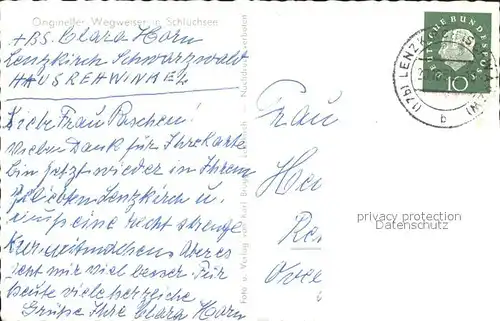 Origineller Wegweiser in Schluchsee
+BS. Clara Horn
Lenzkirch Schwarzwald
HAUS REHWINKEL
Liebe Frau Paschen!
Vielen Dank für Ihre Karte
bin jetzt wieder in Ihrem
geliebten Lenzkirch u.
muss eine recht strenge
Kur mitmachen Aber es
geht mir viel besser. Für
heute viele herzliche
Grüße Ihre Clara Horn
Foto u. Verlag von Karl
Nachdruck verboten
DEUTSCHE BUNDESPOST
10
(17b) LENZKIRCH
b
Frau
privacy protection
Datenschutz